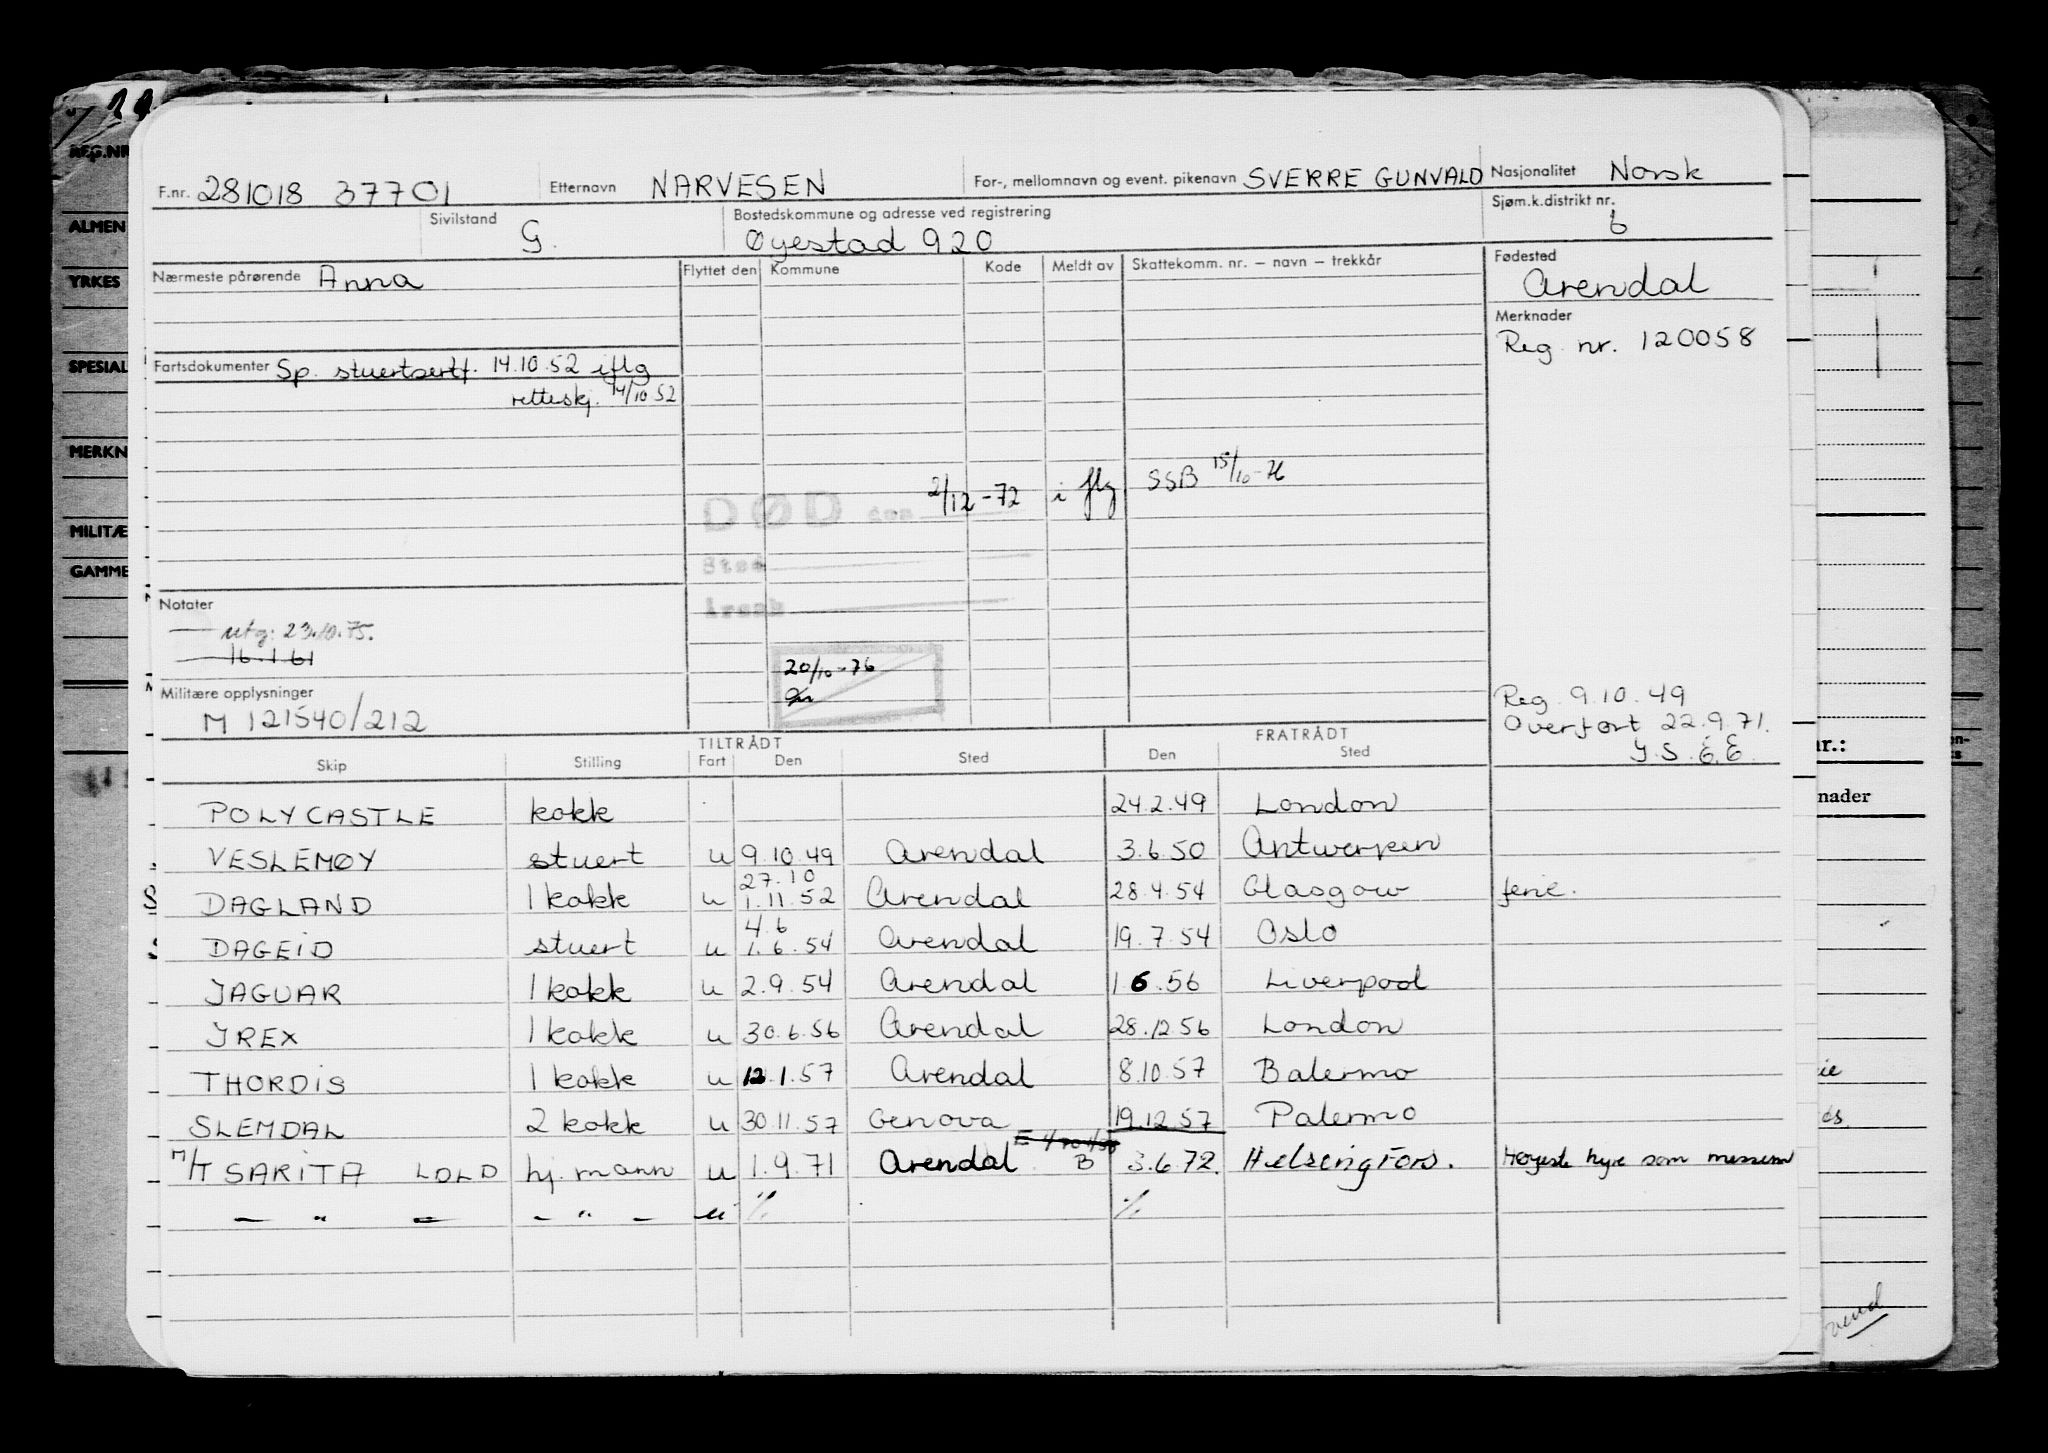 REG.NR
F.nr. 281018 37701 Etternavn NARVESEN For-, mellomnavn og event. pikenavn SVERRE GUNVALD Nasjonalitet Norsk
ALMEN
Sivilstand G. Bostedskommune og adresse ved registrering Øyestad 920 Sjøm.k.distrikt nr. 6
YRKES
Nærmeste pårørende Anna Flyttet den Kommune Kode Meldt av Skattekomm. nr. – navn – trekkår Fødested Arendal
Merknader
Reg nr. 120058
SPESIAL
Fartsdokumenter Sp. stuertsertf. 14.10.52 iflg
retteskj. 14/10 52
MERKN
2/12-72 i flg SSB 15/10-76
DØD den
MILITÆ
Sted
GAMME
årsak
Notater
utg: 23.10.75.
16.1.61
20/10-76
Militære opplysninger
M 121540/212
Reg. 9.10.49
Overført 22.9.71.
TILTRÅDT FRATRÅDT
Skip Stilling Fart Den Sted Den Sted
nr.:
nader
POLYCASTLE kokk 24.2.49 London
VESLEMØY stuert u 9.10.49 Arendal 3.6.50 Antwerpen
27.10
DAGLAND 1 kokk u 1.11.52 Arendal 28.4.54 Glasgow ferie.
4.6
DAGEID stuert u 1.6.54 Arendal 19.7.54 Oslo
JAGUAR 1 kokk u 2.9.54 Arendal 1.6.56 Liverpool
JREX 1 kokk u 30.6.56 Arendal 28.12.56 London
THORDIS 1 kokk u 12.1.57 Arendal 8.10.57 Balermo
SLEMDAL 2 kokk u 30.11.57 Genova 19.12.57 Palermo
M/T SARITA LDLD hj. mann u 1.9.71 Arendal B 3.6.72. Helsingfors. Høyeste hyre som messem
— " — — " — u % %
vend